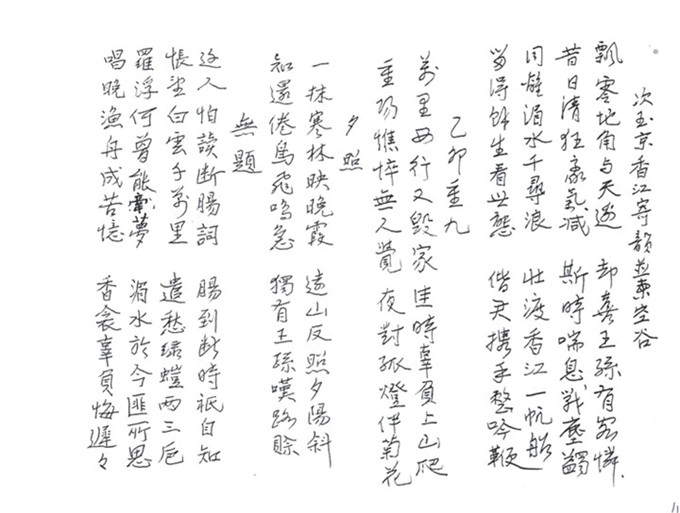 次玉京香江寄韻並柬空谷
飄零地角与天邊 却喜王孫有客憐
昔日清狂豪氣減 斯時喘息戰塵蠲
同離湄水千尋浪 壯渡香江一帆船
留得餘生看世態 偕君携手整吟鞭
乙卯重九
萬里毋行又毀家 佳時辜負上山爬
重陽憔悴無人覺 夜對孤燈伴菊花
夕照
一抹寒林映晚霞 遠山反照夕陽斜
知還倦鳥飛鳴急 獨有王孫嘆路賒
無題
近人怕讀断腸詞 腸到断時祇自知
悵望白雲千萬里 遣愁綠螘兩三卮
羅浮何曾能夢 湄水於今匪所思
唱晚漁舟成苦憶 香衾辜負悔遲々